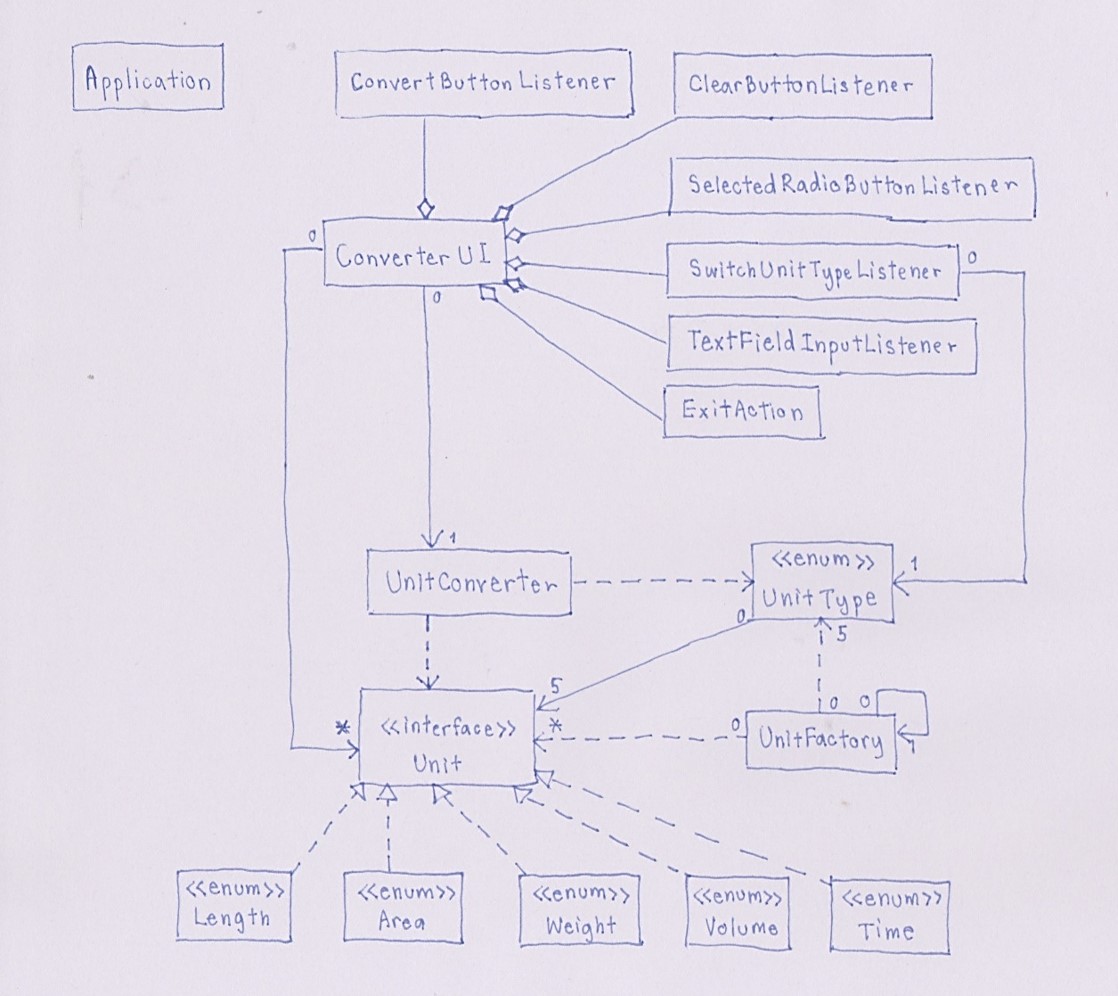 Application
ConvertButtonListener
ClearButtonListener
SelectedRadioButtonListener
0
ConverterUI
SwitchUnitTypeListener
0
0
TextFieldInputListener
ExitAction
1
<<enum>>
1
UnitConverter
UnitType
0
5
5
0
0
*
<<interface>>
*
0
UnitFactory
1
Unit
<<enum>>
Length
<<enum>>
Area
<<enum>>
Weight
<<enum>>
Volume
<<enum>>
Time